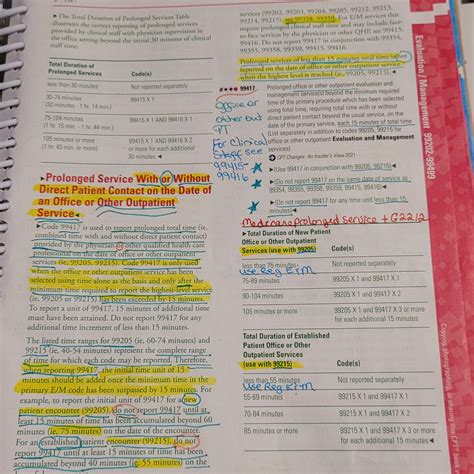 ▸The Total Duration of Prolonged Services Table
illustrates the correct reporting of prolonged services
provided by clinical staff with physician supervision in
the office setting beyond the initial 30 minutes of clinical
staff time:
Total Duration of
Prolonged Services Code(s)
less than 30 minutes Not reported separately
30-74 minutes 99415 X 1
(30 minutes - 1 hr. 14 min.)
75-104 minutes 99415 X 1 AND 99416 X 1
(1 hr. 15 min. - 1 hr. 44 min.)
105 minutes or more 99415 X 1 AND 99416 X 2
(1 hr. 45 min. or more) or more for each additional
30 minutes◄
▸Prolonged Service With or Without
Direct Patient Contact on the Date of
an Office or Other Outpatient
Service◄
▸Code 99417 is used to report prolonged total time (ie,
combined time with and without direct patient contact)
provided by the physician or other qualified health care
professional on the date of office or other outpatient
services (ie, 99205, 99215). Code 99417 is only used
when the office or other outpatient service has been
selected using time alone as the basis and only after the
minimum time required to report the highest-level service
(ie, 99205 or 99215) has been exceeded by 15 minutes.
To report a unit of 99417, 15 minutes of additional time
must have been attained. Do not report 99417 for any
additional time increment of less than 15 minutes.
The listed time ranges for 99205 (ie, 60-74 minutes) and
99215 (ie, 40-54 minutes) represent the complete range
of time for which each code may be reported. Therefore,
when reporting 99417, the initial time unit of 15
minutes should be added once the minimum time in the
primary E/M code has been surpassed by 15 minutes. For
example, to report the initial unit of 99417 for a new
patient encounter (99205), do not report 99417 until at
least 15 minutes of time has been accumulated beyond 60
minutes (ie, 75 minutes) on the date of the encounter.
For an established patient encounter (99215), do not
report 99417 until at least 15 minutes of time has been
accumulated beyond 40 minutes (ie, 55 minutes) on the
services (99202, 99203, 99204, 99205, 99212, 99213,
99214, 99215), see 99358, 99359. For E/M services that
require prolonged clinical staff time and may include face-
to-face services by the physician or other QHP, see 99415,
99416. Do not report 99417 in conjunction with 99354,
99355, 99358, 99359, 99415, 99416.
Prolonged services of less than 15 minutes total time
reported on the date of office or other outpatient service
when the highest level is reached (ie, 99205, 99215).◄
99417 Prolonged office or other outpatient evaluation and
management service(s) beyond the minimum required
time of the primary procedure which has been selected
using total time, requiring total time with or without
direct patient contact beyond the usual service, on the
date of the primary service, each 15 minutes of total time
(List separately in addition to codes 99205, 99215 for
office or other outpatient Evaluation and Management
services)
CPT Changes: An Insider's View 2021
▸(Use 99417 in conjunction with 99205, 99215)◄
▸(Do not report 99417 on the same date of service as
99354, 99355, 99358, 99359, 99415, 99416)◄
▸(Do not report 99417 for any time unit less than 15
minutes)◄
office or
other out
PT
For Clinical
Staff see
99415-
99416
Medicare Prolonged Service + G2212
▸Total Duration of New Patient
Office or Other Outpatient
Services (use with 99205) Code(s)
less than 75 minutes Not reported separately
Use Reg E+M
75-89 minutes 99205 X 1 and 99417 X 1
90-104 minutes 99205 X 1 and 99417 X 2
105 minutes or more 99205 X 1 and 99417 X 3 or more
for each additional 15 minutes
Total Duration of Established
Patient Office or Other
Outpatient Services
(use with 99215) Code(s)
less than 55 minutes Not reported separately
Use Reg E+M
55-69 minutes 99215 X 1 and 99417 X 1
70-84 minutes 99215 X 1 and 99417 X 2
85 minutes or more 99215 X 1 and 99417 X 3 or more
for each additional 15 minutes◄
Evaluation / Management 99202-99499